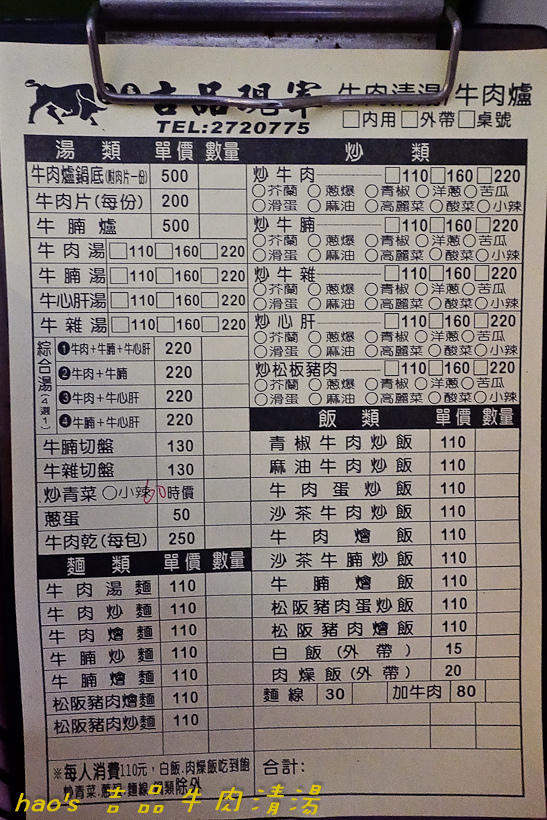 吉品現宰 牛肉清湯/牛肉爐
TEL:2720775 □內用□外帶□桌號
湯類 單價 數量
牛肉爐鍋底(附肉片一份) 500
牛肉片(每份) 200
牛腩爐 500
牛肉湯 □110□160□220
牛腩湯 □110□160□220
牛心肝湯 □110□160□220
牛雜湯 □110□160□220
綜合湯(4選1)
❶牛肉+牛腩+牛心肝 220
❷牛肉+牛腩 220
❸牛肉+牛心肝 220
❹牛腩+牛心肝 220
牛腩切盤 130
牛雜切盤 130
炒青菜 ○小辣 60 時價
蔥蛋 50
牛肉乾(每包) 250
麵類 單價 數量
牛肉湯麵 110
牛肉炒麵 110
牛肉燴麵 110
牛腩炒麵 110
牛腩燴麵 110
松阪豬肉燴麵 110
松阪豬肉炒麵 110
※每人消費110元，白飯.肉燥飯吃到飽
炒青菜.蔥蛋.麵線.類除外
炒類
炒牛肉 □110□160□220
○芥蘭 ○蔥爆 ○青椒 ○洋蔥○苦瓜
○滑蛋 ○麻油 ○高麗菜 ○酸菜○小辣
炒牛腩 □110□160□220
○芥蘭 ○蔥爆 ○青椒 ○洋蔥○苦瓜
○滑蛋 ○麻油 ○高麗菜 ○酸菜○小辣
炒牛雜 □110□160□220
○芥蘭 ○蔥爆 ○青椒 ○洋蔥○苦瓜
○滑蛋 ○麻油 ○高麗菜 ○酸菜○小辣
炒心肝 □110□160□220
○芥蘭 ○蔥爆 ○青椒 ○洋蔥○苦瓜
○滑蛋 ○麻油 ○高麗菜 ○酸菜○小辣
炒松板豬肉 □110□160□220
○芥蘭 ○蔥爆 ○青椒 ○洋蔥○苦瓜
○滑蛋 ○麻油 ○高麗菜 ○酸菜○小辣
飯類 單價 數量
青椒牛肉炒飯 110
麻油牛肉炒飯 110
牛肉蛋炒飯 110
沙茶牛肉炒飯 110
牛肉燴飯 110
沙茶牛腩炒飯 110
牛腩燴飯 110
松阪豬肉蛋炒飯 110
松阪豬肉燴飯 110
白飯(外帶) 15
肉燥飯(外帶) 20
麵線 30 加牛肉 80
合計:
hao's 吉品牛肉清湯